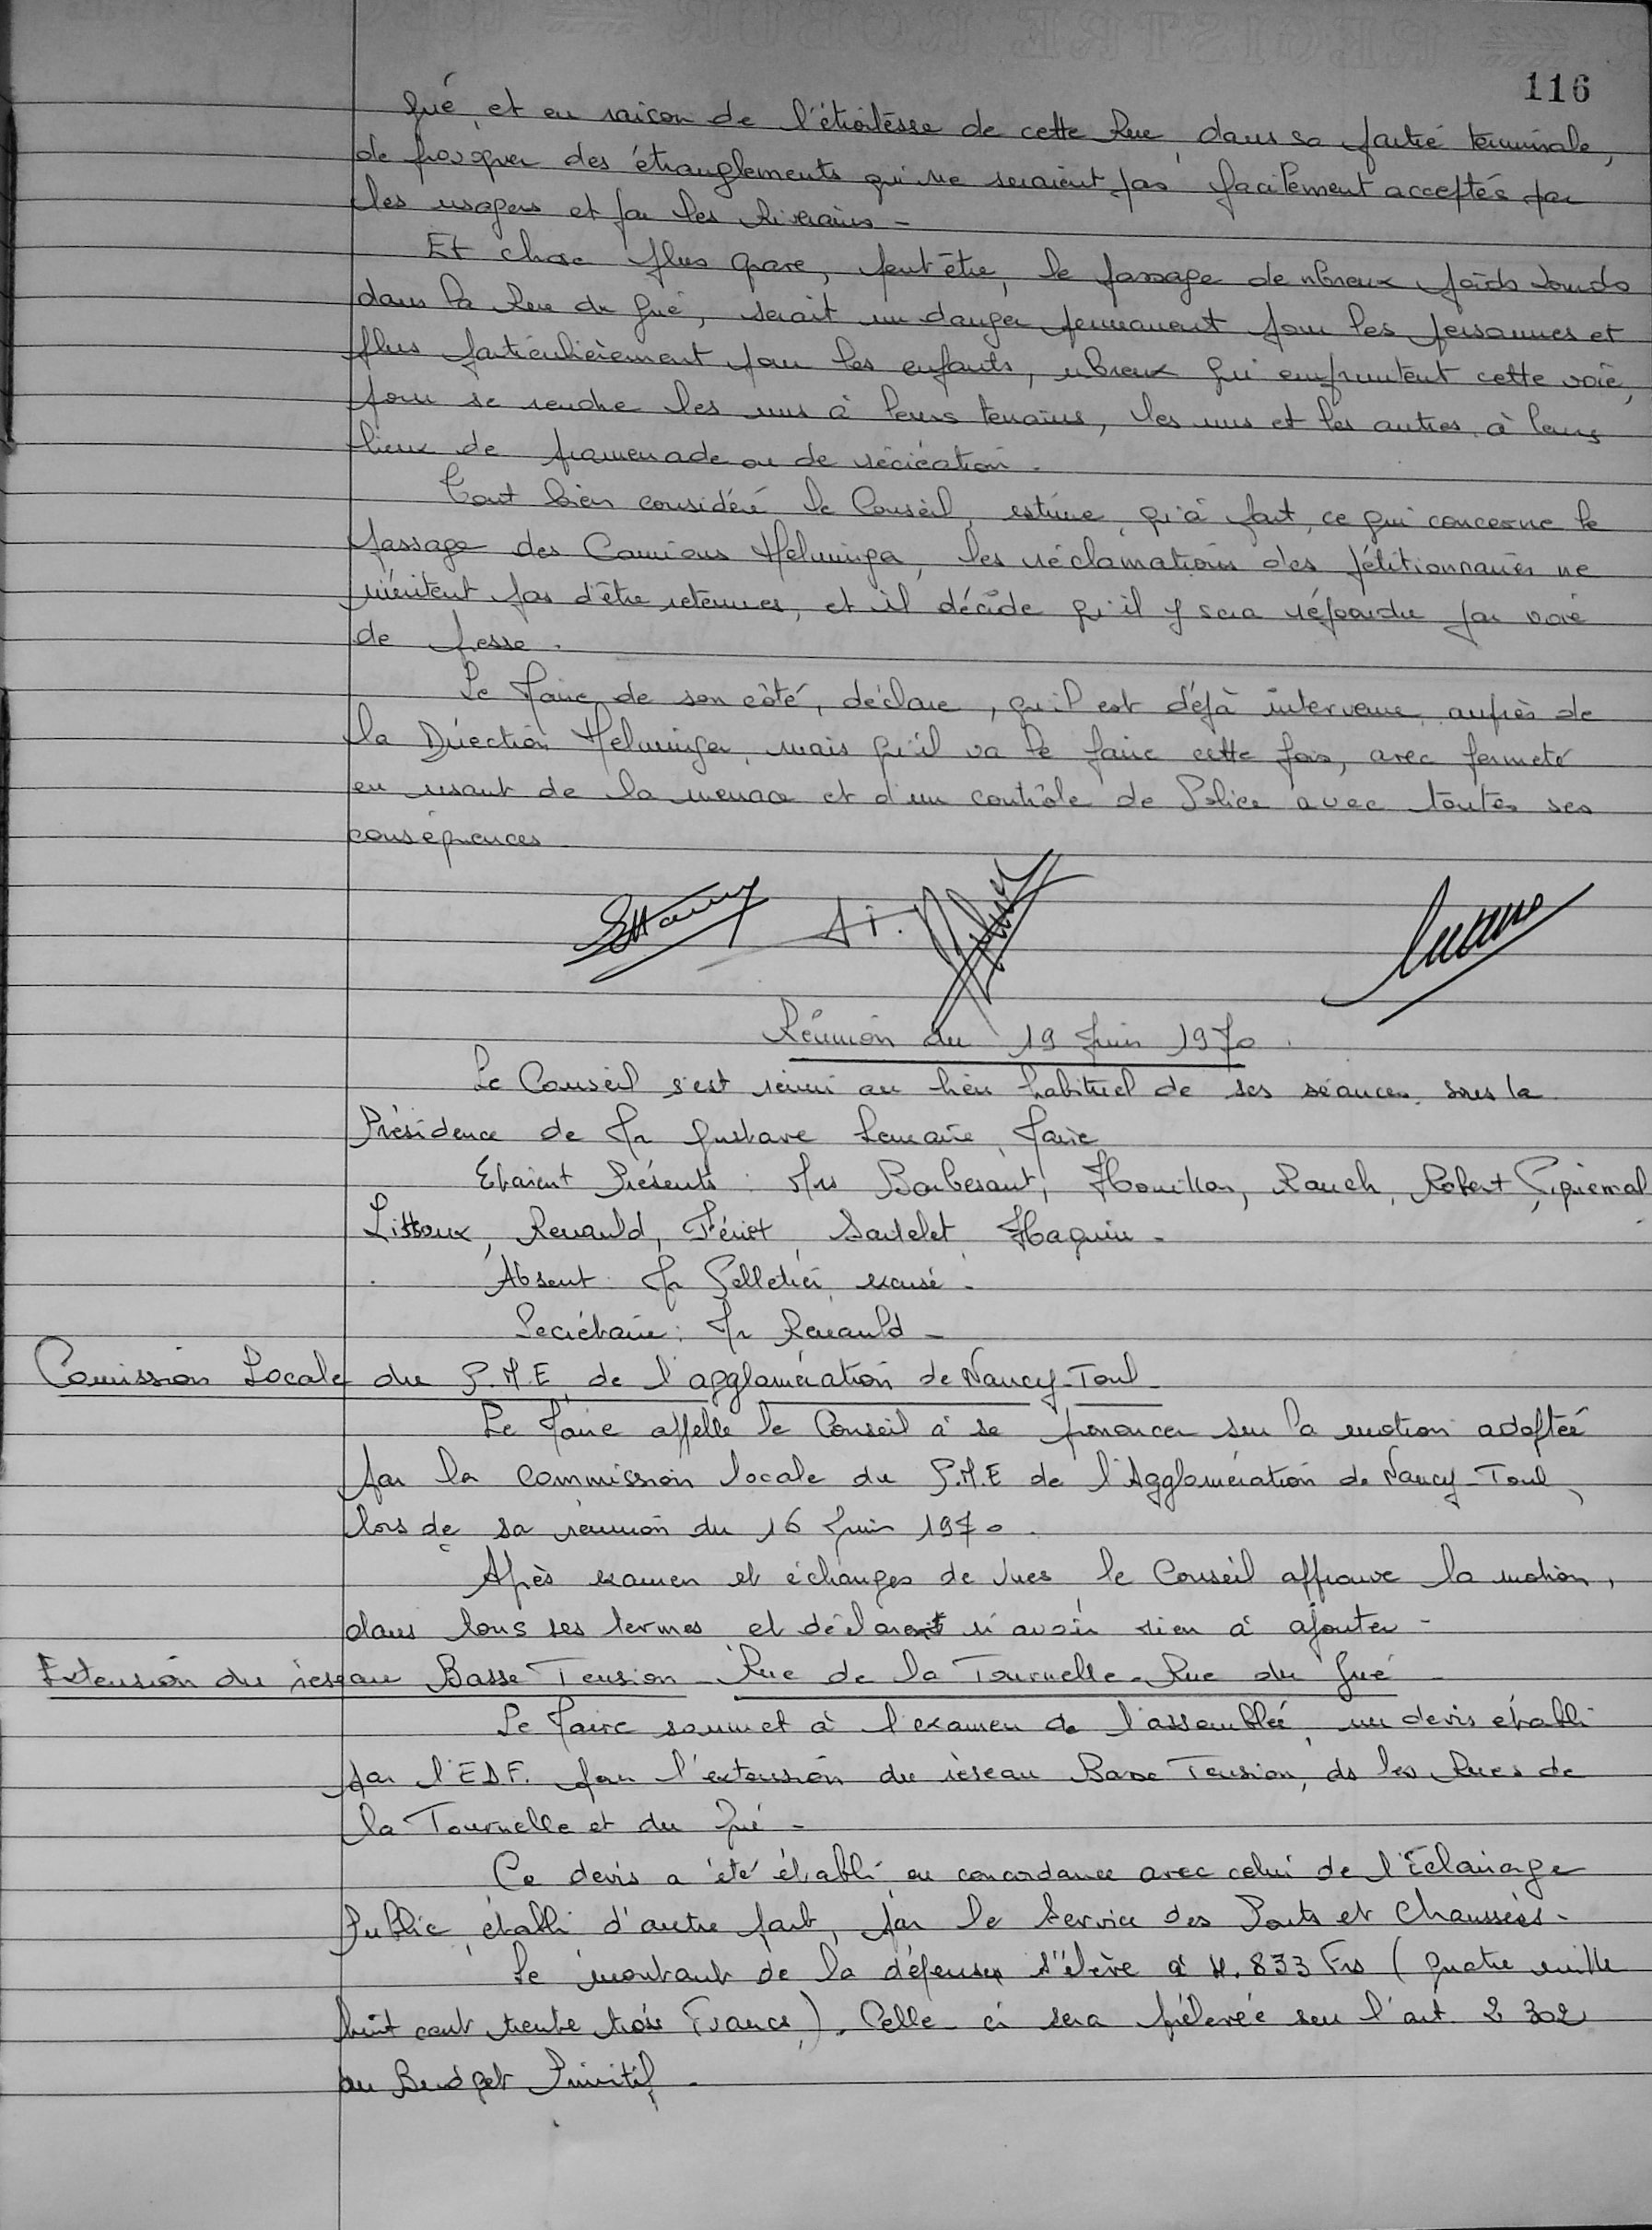 116
Gué, et en raison de l'étroitesse de cette Rue, dans sa partie terminale,
de provoquer des étranglements qui ne seraient pas facilement acceptés par
les usagers et par les Riverains -
Et chose plus grave, peut être, le passage de nbreux poids lourds
dans la Rue du Gué, serait un danger permanent pour les personnes et
plus particulièrement pour les enfants, nbreux qui empruntent cette voie,
pour se rendre les uns à leurs terrains, les uns et les autres, à leurs
lieux de promenade ou de récréation.
Tout bien considéré le Conseil, estime, qu'à part, ce qui concerne le
passage des Camions Helminger, les réclamations des pétitionnaires ne
méritent pas d'être retenues, et il décide qu'il y sera répondu par voie
de presse.
Le Maire de son côté, déclare, qu'il est déjà intervenu, auprès de
la Direction Helminger, mais qu'il va le faire cette fois, avec fermeté
en usant de la menace et d'un contrôle de Police avec toutes ses
conséquences
Réunion du 19 Juin 1970.
Le Conseil s'est réuni au lieu habituel de ses séances, sous la
Présidence de Mr Gustave Lemaire, Maire
Etaient Présents : Mrs Barbesant, Houillon, Rauch, Robert,
Littoux, Renauld, Fériet, Sartelet, Haquin -
Absent Mr Pelletier, excusé -
Secrétaire : Mr Renauld -
Comission Locale du P.M.E, de l'agglomération de Nancy-Toul -
Le Maire appelle le Conseil à se prononcer sur la motion adoptée
par la Commission locale du P.M.E de l'Agglomération de Nancy-Toul,
lors de sa réunion du 16 Juin 1970.
Après examen et échanges de vues le Conseil approuve la motion,
dans tous ses termes et déclarent n'avoir rien à ajouter -
Extension du réseau Basse Tension - Rue de la Tournelle - Rue du Gué -
Le Maire soumet à l'examen de l'assemblée, un devis établi
par l'EDF. pour l'extension du réseau Basse Tension, ds les Rues de
la Tournelle et du Gué -
Ce devis a été établi en concordance avec celui de l'Eclairage
Public, établi d'autre part, par le Service des Ponts et Chaussées -
Le montant de la dépense s'élève à 4.833 Frs (quatre mille
huit cent trente trois Francs). Celle-ci sera prélevée sur l'art. 2 302
au Budget Primitif.